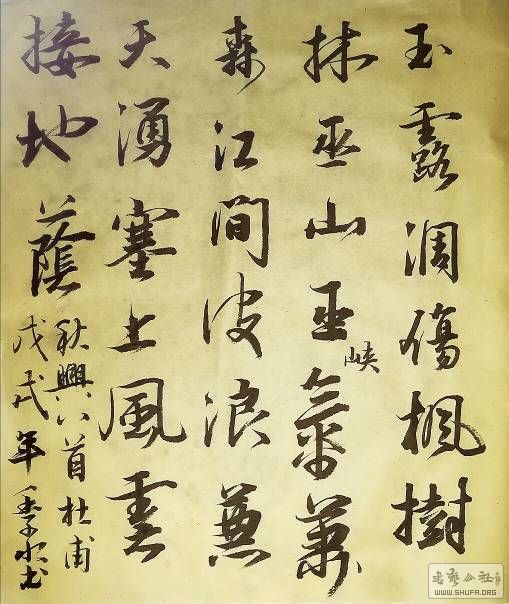 玉露凋傷楓樹
林巫山巫峡氣萧
森江間波浪兼
天湧塞上風雲
接地蔭
秋興八首杜甫
戊戌年季水书
书艺公社
WWW.SHUFA.ORG